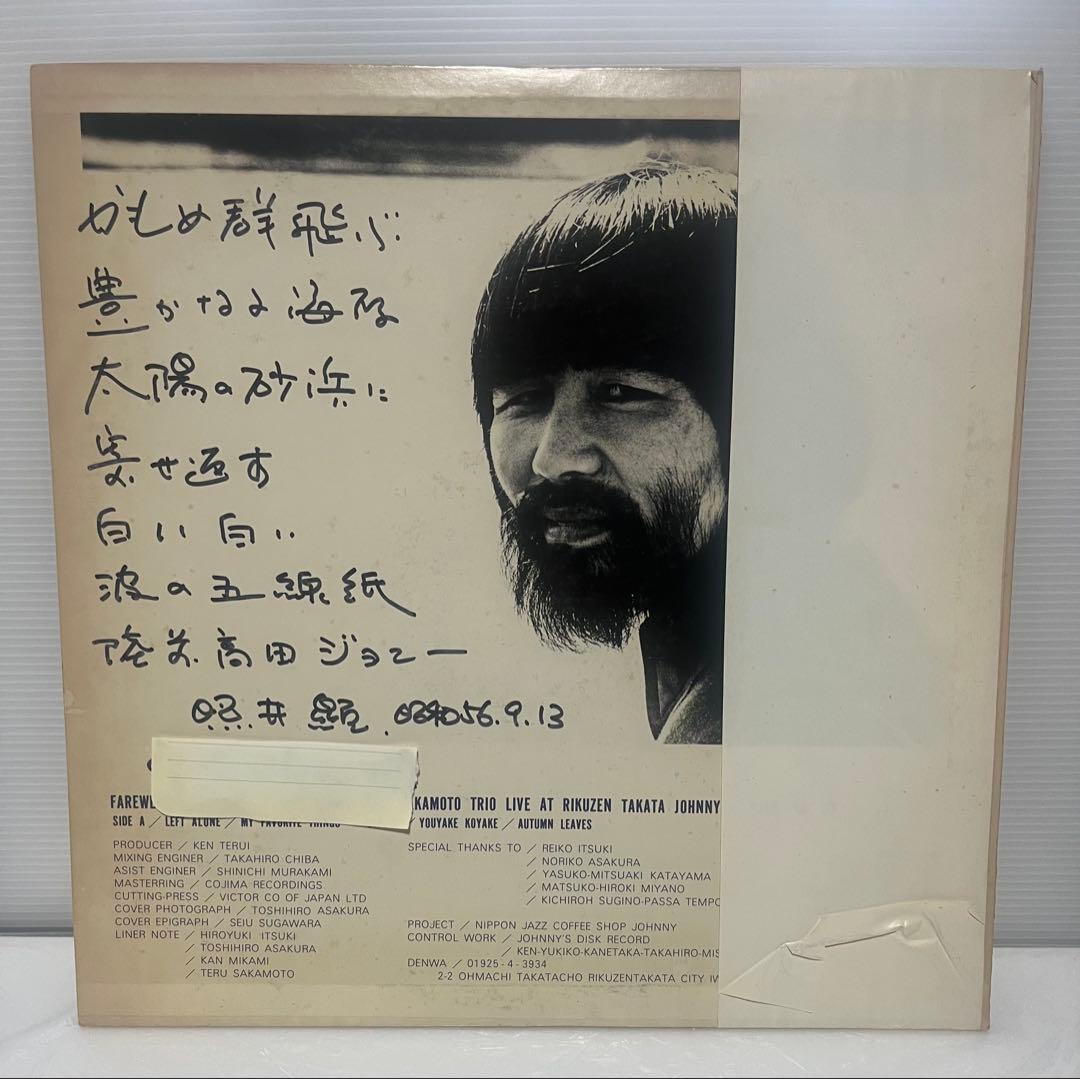 かもめ群飛ぶ
豊かなる海原
太陽の砂浜に
寄せ返す
白い白い
波の五線紙
陸前高田ジョニー
照井顕 昭和56.9.13
FAREWE KAMOTO TRIO LIVE AT RIKUZEN TAKATA JOHNNY
SIDE A / LEFT ALONE / MY FAVORITE THINGS / YOUYAKE KOYAKE / AUTUMN LEAVES
PRODUCER / KEN TERUI
MIXING ENGINER / TAKAHIRO CHIBA
ASIST ENGINER / SHINICHI MURAKAMI
MASTERRING / COJIMA RECORDINGS
CUTTING-PRESS / VICTOR CO OF JAPAN LTD
COVER PHOTOGRAPH / TOSHIHIRO ASAKURA
COVER EPIGRAPH / SEIU SUGAWARA
LINER NOTE / HIROYUKI ITSUKI
/ TOSHIHIRO ASAKURA
/ KAN MIKAMI
/ TERU SAKAMOTO
SPECIAL THANKS TO / REIKO ITSUKI
/ NORIKO ASAKURA
/ YASUKO-MITSUAKI KATAYAMA
/ MATSUKO-HIROKI MIYANO
/ KICHIROH SUGINO-PASSA TEMPO
PROJECT / NIPPON JAZZ COFFEE SHOP JOHNNY
CONTROL WORK / JOHNNY'S DISK RECORD
/ KEN-YUKIKO-KANETAKA-TAKAHIRO-MIS
DENWA / 01925-4-3934
2-2 OHMACHI TAKATACHO RIKUZENTAKATA CITY IW